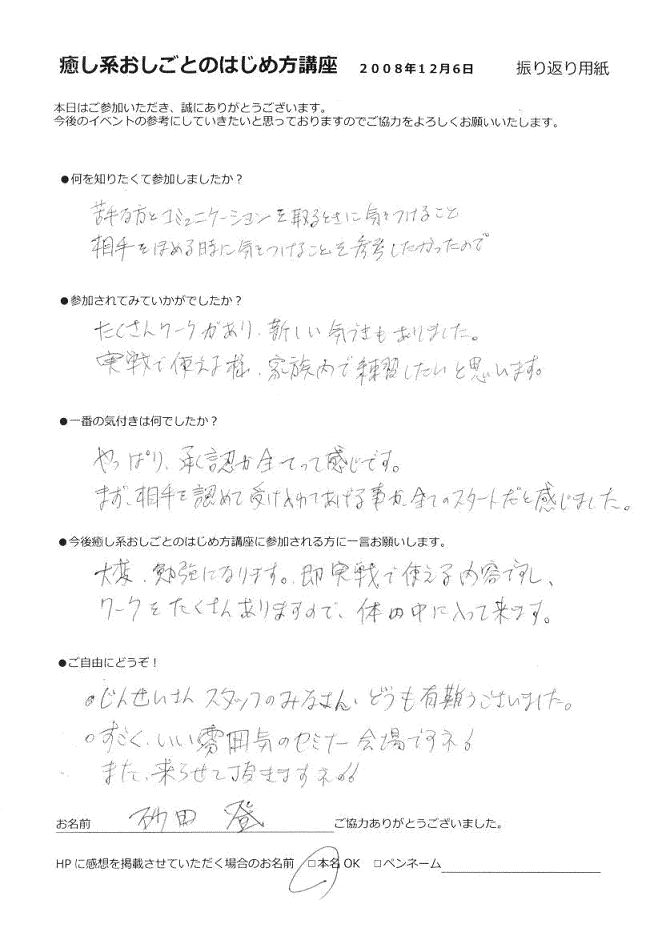 癒し系おしごとのはじめ方講座 2008年12月6日 振り返り用紙
本日はご参加いただき、誠にありがとうございます。
今後のイベントの参考にしていきたいと思っておりますのでご協力をよろしくお願いいたします。
●何を知りたくて参加しましたか？
苦手な方とコミュニケーションを取るときに気をつけること
相手をほめる時に気をつけることを参考したかったので
●参加されてみていかがでしたか？
たくさんワークがあり、新しい気づきもありました。
実戦で使える様、家族内で練習したいと思います。
●一番の気付きは何でしたか？
やっぱり、承認が全てって感じです。
まず、相手を認めて受け入れてあげる事が、全てのスタートだと感じました。
●今後癒し系おしごとのはじめ方講座に参加される方に一言お願いします。
大変、勉強になります。即実戦で使える内容ですし、
ワークもたくさんありますので、体の中に入って来ます。
●ご自由にどうぞ！
○じんせいさん スタッフのみなさん、どうも有難うございました。
○すごく、いい雰囲気のセミナー会場ですネ!
また、来らせて頂きますネ!!
お名前 砂田 登 ご協力ありがとうございました。
HPに感想を掲載させていただく場合のお名前 □本名OK □ペンネーム